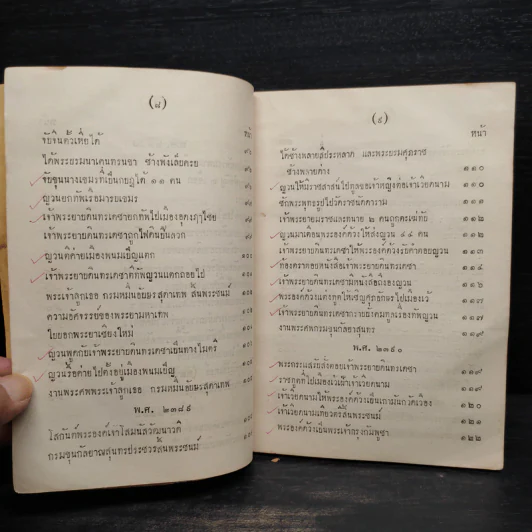 (๘)
หน้า
จับจีนตั้วเหี่ยได้
ได้พระยรมนาเคนทรนฤา ช้างพังเลียครย
จับขุนนางเขมรที่เป็นกบฏได้ ๑๑ คน
ญวนยกทัพเรือมารบเขมร
เจ้าพระยาบดินทรเดชายกทัพไปเมืองอุดงฦาไชย
เจ้าพระยาบดินทรเดชาถูกไฟดินปืนลวก
ญวนตีค่ายเมืองพนมเป็ญแตก
เจ้าพระยาบดินทรเดชาตีทัพญวนแตกถอยไป
พระเจ้าลูกเธอ กรมหมื่นอัปสรสุดาเทพ สิ้นพระชนม์
ความอัศจรรย์ของพระยามหาเทพ
ใบบอกพระยาเชียงใหม่
ญวนพูดกับเจ้าพระยาบดินทรเดชาเป็นทางไมตรี
ญวนรื้อค่ายไปตั้งอยู่เมืองพนมเป็ญ
งานพระศพพระเจ้าลูกเธอ กรมหมื่นอัปสรสุดาเทพ
พ.ศ. ๒๓๘๙
โสกันต์พระองค์เจ้าโสมนัสวัฒนาวดี
กรมขุนกัลยาณสุนทรประชวรสิ้นพระชนม์
(๙)
หน้า
ได้ช้างพลายสีประหลาด และพระยรมศุภราช
ช้างพลายด่าง ๑๑๐
ญวนให้มีราชสาสน์ไปทูลขอเจ้าหญิงต่อเจ้าเวียดนาม ๑๑๐
ชักพระพุทธรูปไปวัดราชนัดดาราม ๑๑๑
เจ้าพระยายมราชและทนาย ๒ คนถูกตะเฆ่ทับ ๑๑๒
ญวนมาเตือนพระองค์ด้วงให้ส่งญวน ๔๔ คน ๑๑๒
เจ้าพระยาบดินทรเดชาให้พระองค์ด้วงยับคำตอบญวน ๑๑๓
ท้องตราตอบหนังสือเจ้าพระยาบดินทรเดชา ๑๑๔
เจ้าพระยาบดินทรเดชามีหนังสือถึงองญวน ๑๑๖
พระองค์ด้วงแต่งทูตให้เชิญศุภอักษรไปเมืองเว้ ๑๑๗
เจ้าพระยาบดินทรเดชากราบบังคมทูลเรื่องทัพญวน ๑๑๗
งานพระศพกรมขุนกัลยาสุนทร ๑๑๙
พ.ศ. ๒๓๙๐
พระกระแสรับสั่งตอบเจ้าพระยาบดินทรเดชา ๑๑๙
ราชทูตไปเมืองเว้เฝ้าเจ้าเวียดนาม ๑๑๙
เจ้าเวียดนามให้พระองค์ด้วงเป็นเกามันก๊กเวือง ๑๒๐
เจ้าเวียดนามเทียวตรีสิ้นพระชนม์ ๑๒๑
พระองค์ด้วงเป็นพระเจ้ากรุงกัมพูชา ๑๒๒